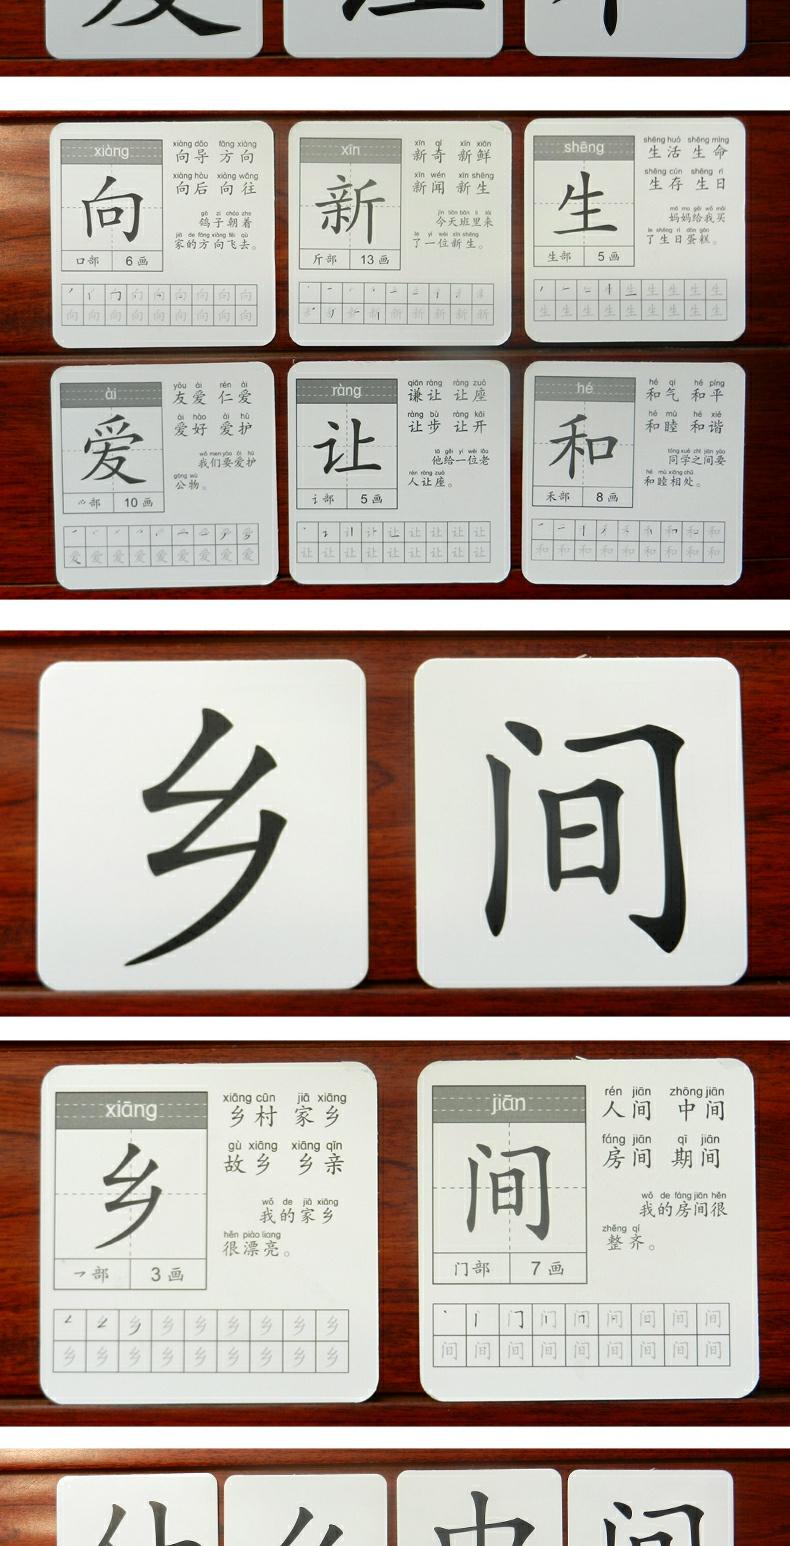 xiàng
向
口部 6画
xiàng dǎo fāng xiàng
向导 方向
xiàng hòu xiàng wǎng
向后 向往
gē zi cháo zhe
鸽子朝着
jiā de fāng xiàng fēi qù
家的方向飞去。
xīn
新
斤部 13画
xīn qí xīn xiān
新奇 新鲜
xīn wén xīn shēng
新闻 新生
jīn tiān bān lǐ lái
今天班里来
le yí wèi xīn shēng
了一位新生。
shēng
生
生部 5画
shēng huó shēng mìng
生活 生命
shēng cún shēng rì
生存 生日
mā ma gěi wǒ mǎi
妈妈给我买
le shēng rì dàn gāo
了生日蛋糕。
ài
爱
爫部 10画
yǒu ài rén ài
友爱 仁爱
ài hào ài hù
爱好 爱护
wǒ men yào ài hù
我们要爱护
gōng wù
公物。
ràng
让
讠部 5画
qiān ràng ràng zuò
谦让 让座
ràng bù ràng kāi
让步 让开
tā gěi yí wèi lǎo
他给一位老
rén ràng zuò
人让座。
hé
和
禾部 8画
hé qi hé píng
和气 和平
hé mù hé xié
和睦 和谐
tóng xué zhī jiān yào
同学之间要
hé mù xiāng chǔ
和睦相处。
乡 间
xiāng
乡
乛部 3画
xiāng cūn jiā xiāng
乡村 家乡
gù xiāng xiāng qīn
故乡 乡亲
wǒ de jiā xiāng
我的家乡
hěn piào liang
很漂亮。
jiān
间
门部 7画
rén jiān zhōng jiān
人间 中间
fáng jiān qī jiān
房间 期间
wǒ de fáng jiān hěn
我的房间很
zhěng qí
整齐。